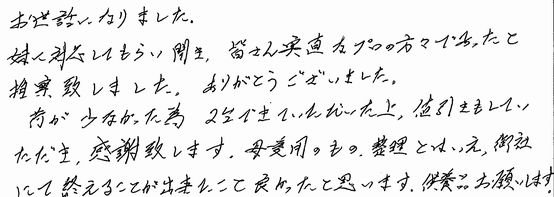 お世話になりました。
妹に対応してもらい聞き、皆さん実直なプロの方々であったと
推察致しました。ありがとうございました。
荷が少なかった為 2台で来ていただいた上、値引きもしてい
ただき、感謝致します。母愛用のもの、整理とはいえ、御社
にて終えることが出来たこと良かったと思います。供養品お願いします